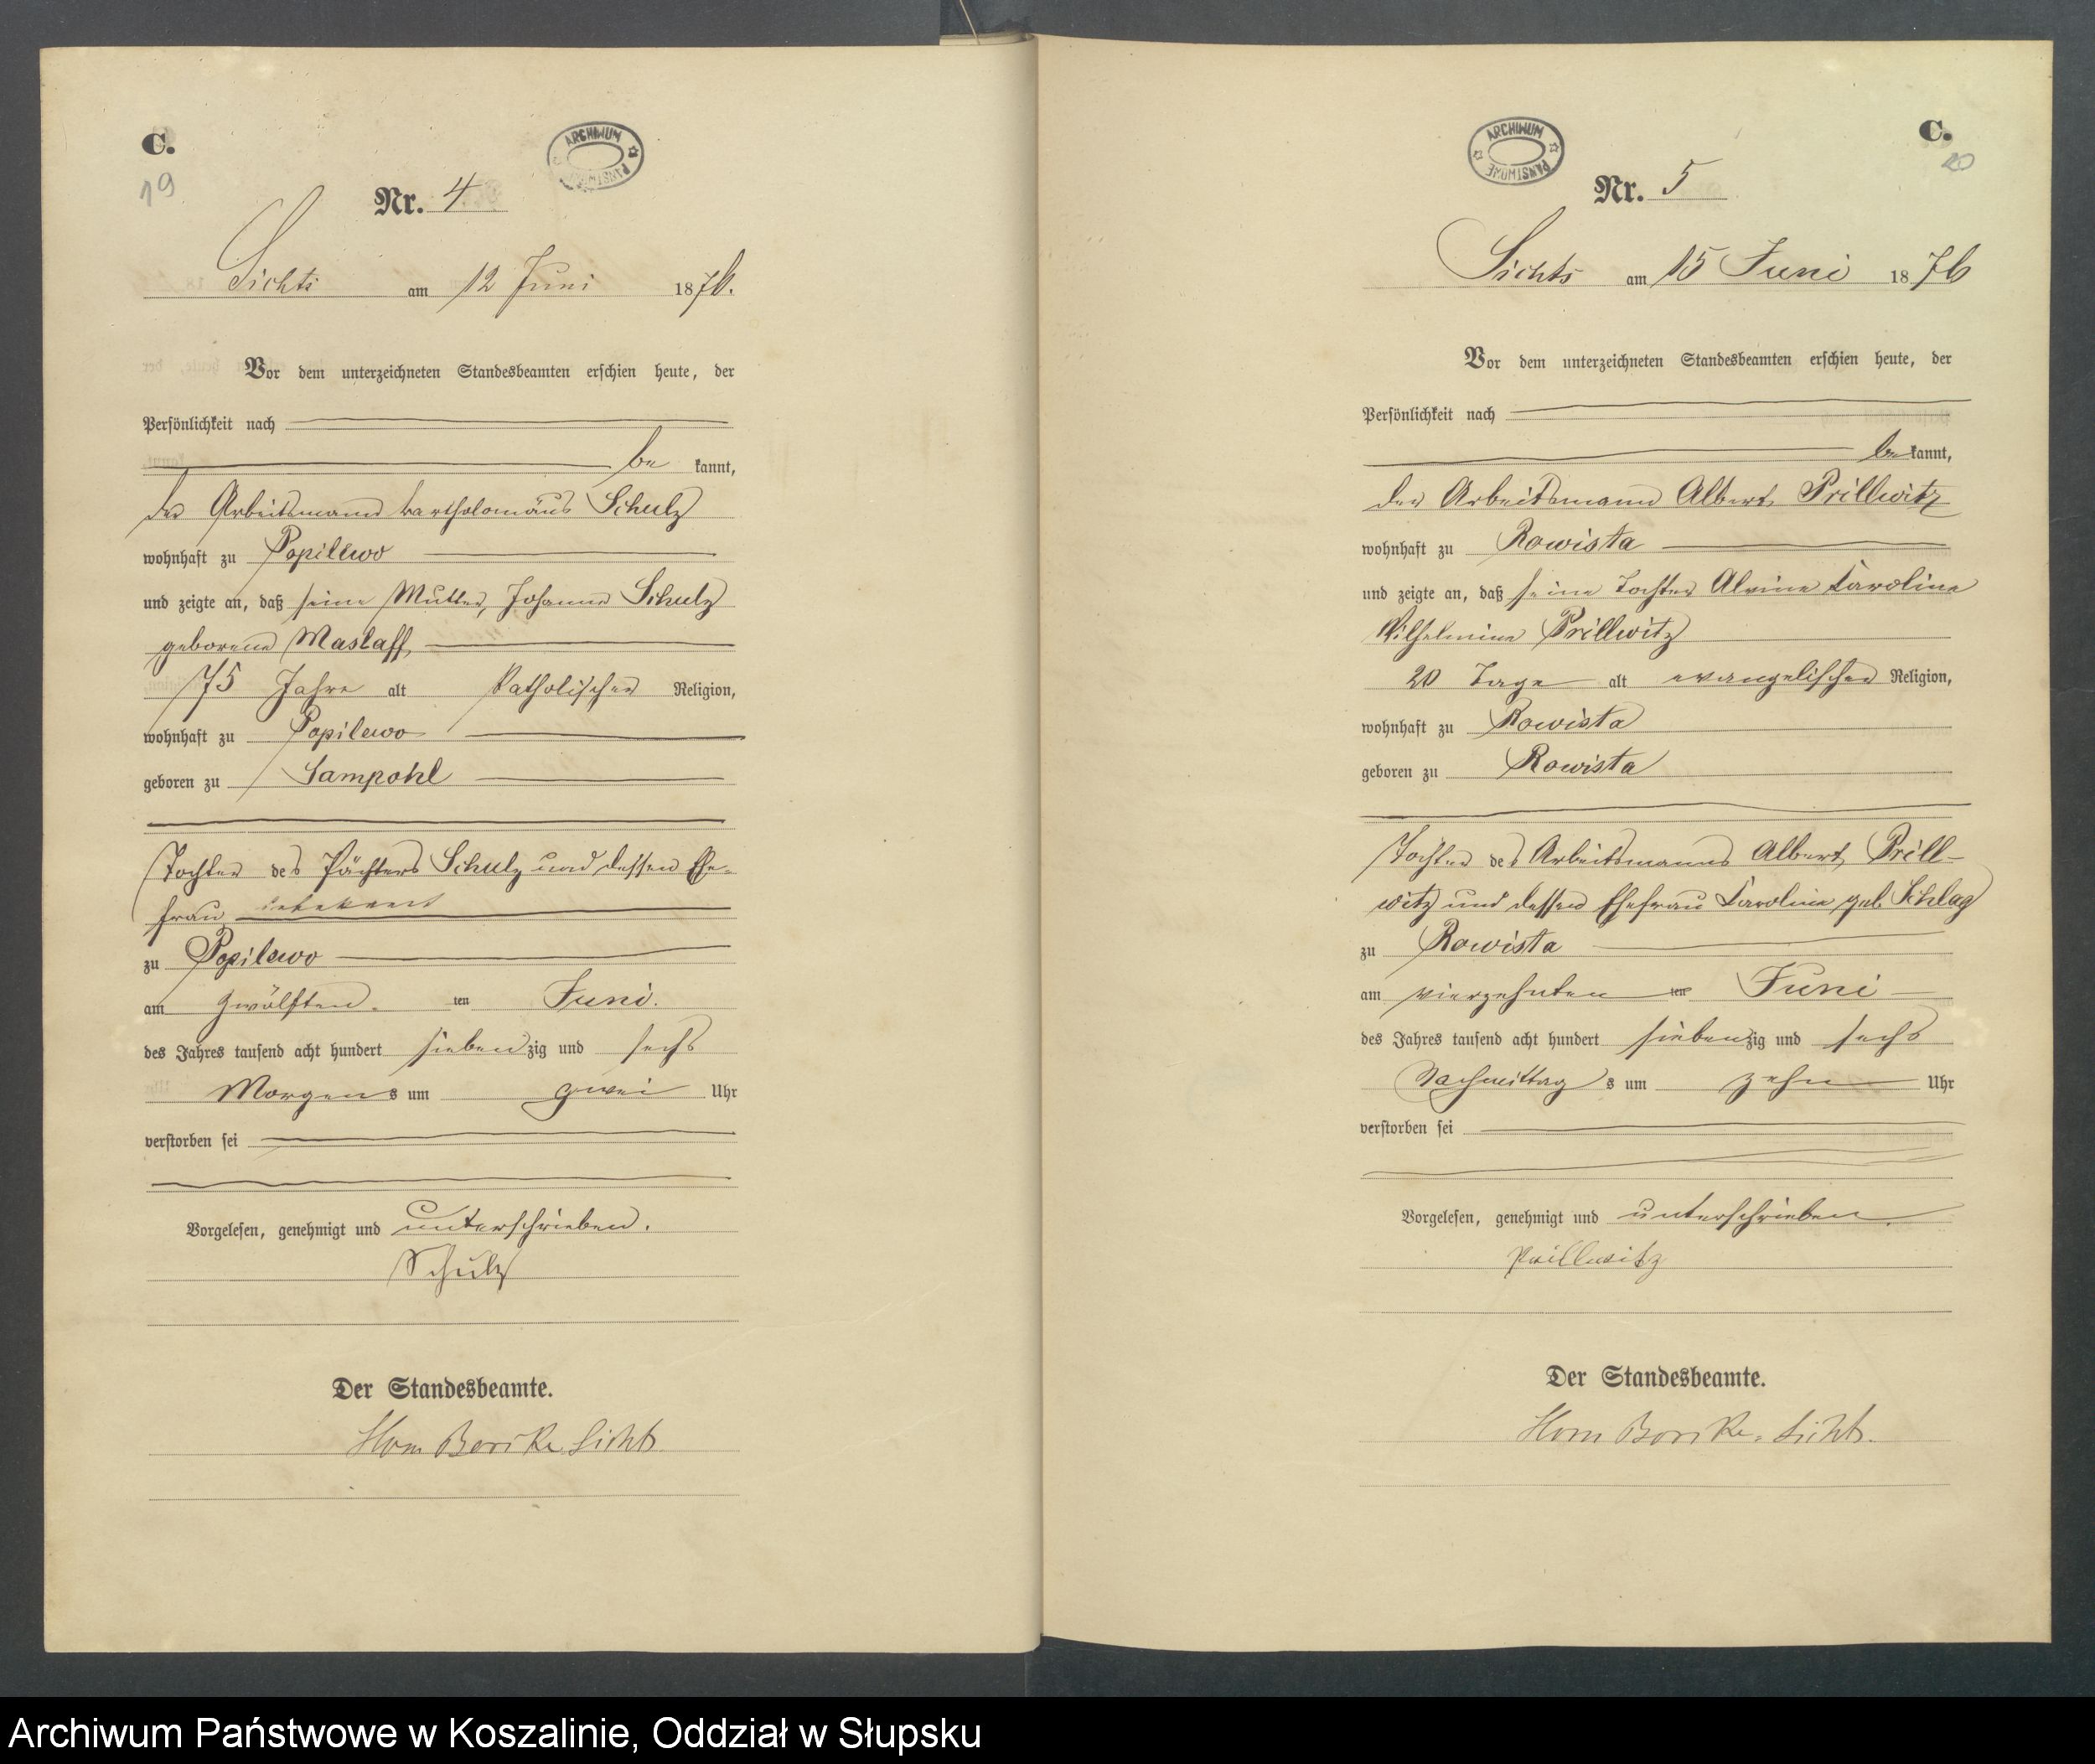 C.
19
ARCHIWUM PAŃSTWOWE
Nr. 4
Sichts am 12 Juni 1876.
Vor dem unterzeichneten Standesbeamten erschien heute, der
Persönlichkeit nach
be kannt,
der Arbeitsmann Bartholomäus Schulz
wohnhaft zu Popillwo
und zeigte an, daß seine Mutter, Johanne Schulz
geborene Maslaff
75 Jahre alt katholischer Religion,
wohnhaft zu Popilewo
geboren zu Sampohl
Tochter des Pächters Schulz und dessen Ehe-
frau unbekannt
zu Popilewo
am zwölften ten Juni.
des Jahres tausend acht hundert siebenzig und sechs
Morgens um zwei Uhr
verstorben sei
Vorgelesen, genehmigt und unterschrieben.
Schulz
Der Standesbeamte.
Borike Sichts
C.
20
ARCHIWUM PAŃSTWOWE
Nr. 5
Sichts am 15 Juni 1876
Vor dem unterzeichneten Standesbeamten erschien heute, der
Persönlichkeit nach
bekannt,
der Arbeitsmann Albert Prillwitz
wohnhaft zu Rowista
und zeigte an, daß seine Tochter Alvine Caroline
Wilhelmine Prillwitz
20 Tage alt evangelischer Religion,
wohnhaft zu Rowista
geboren zu Rowista
Tochter des Arbeitsmanns Albert Prill-
witz und dessen Ehefrau Caroline geb. Schlag
zu Rowista
am vierzehnten ten Juni
des Jahres tausend acht hundert siebenzig und sechs
Nachmittags um zehn Uhr
verstorben sei
Vorgelesen, genehmigt und unterschrieben.
Prillwitz
Der Standesbeamte.
Borike, Sichts.
Archiwum Państwowe w Koszalinie, Oddział w Słupsku